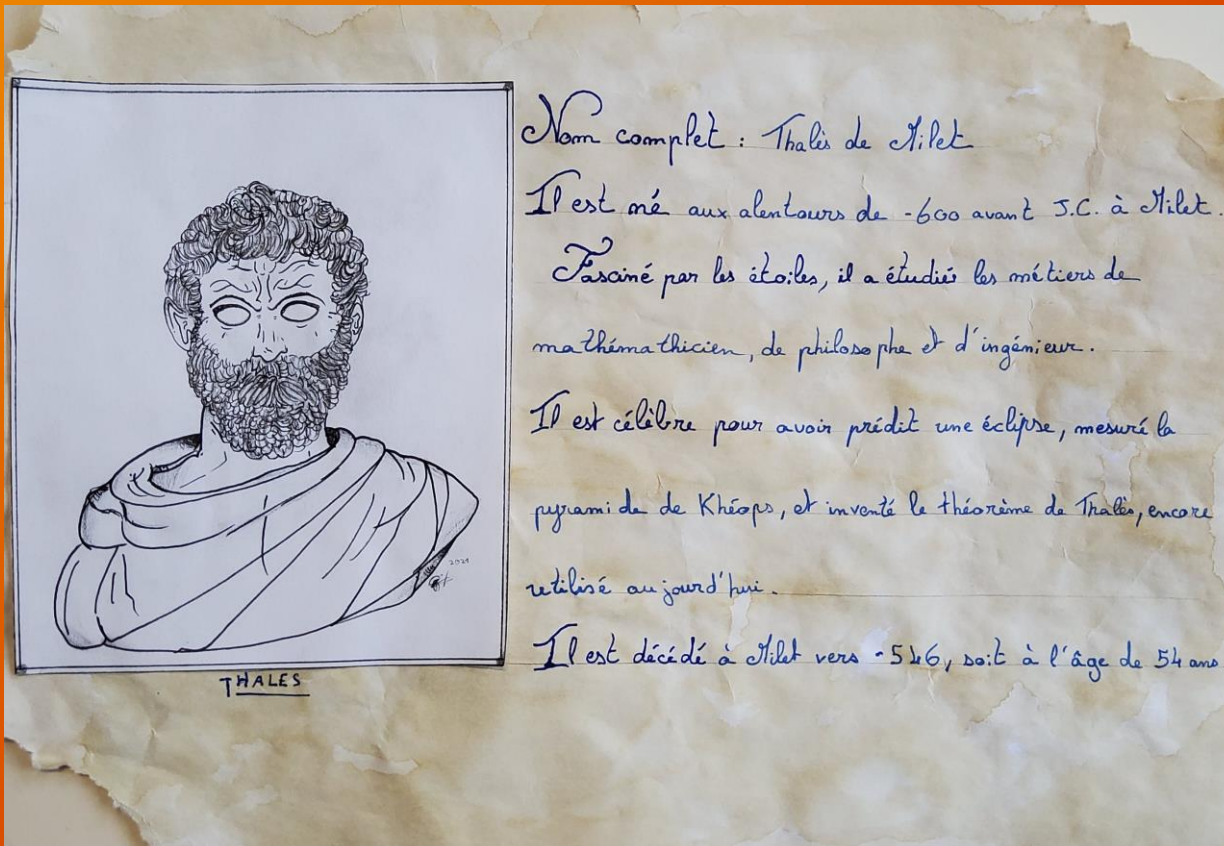 Nom complet : Thalès de Milet
Il est né aux alentours de -600 avant J.C. à Milet.
Fasciné par les étoiles, il a étudié les métiers de
mathémathicien, de philosophe et d'ingénieur.
Il est célèbre pour avoir prédit une éclipse, mesuré la
pyramide de Khéops, et inventé le théorème de Thalès, encore
utilisé aujourd'hui.
Il est décédé à Milet vers -546, soit à l'âge de 54 ans
2021
THALES